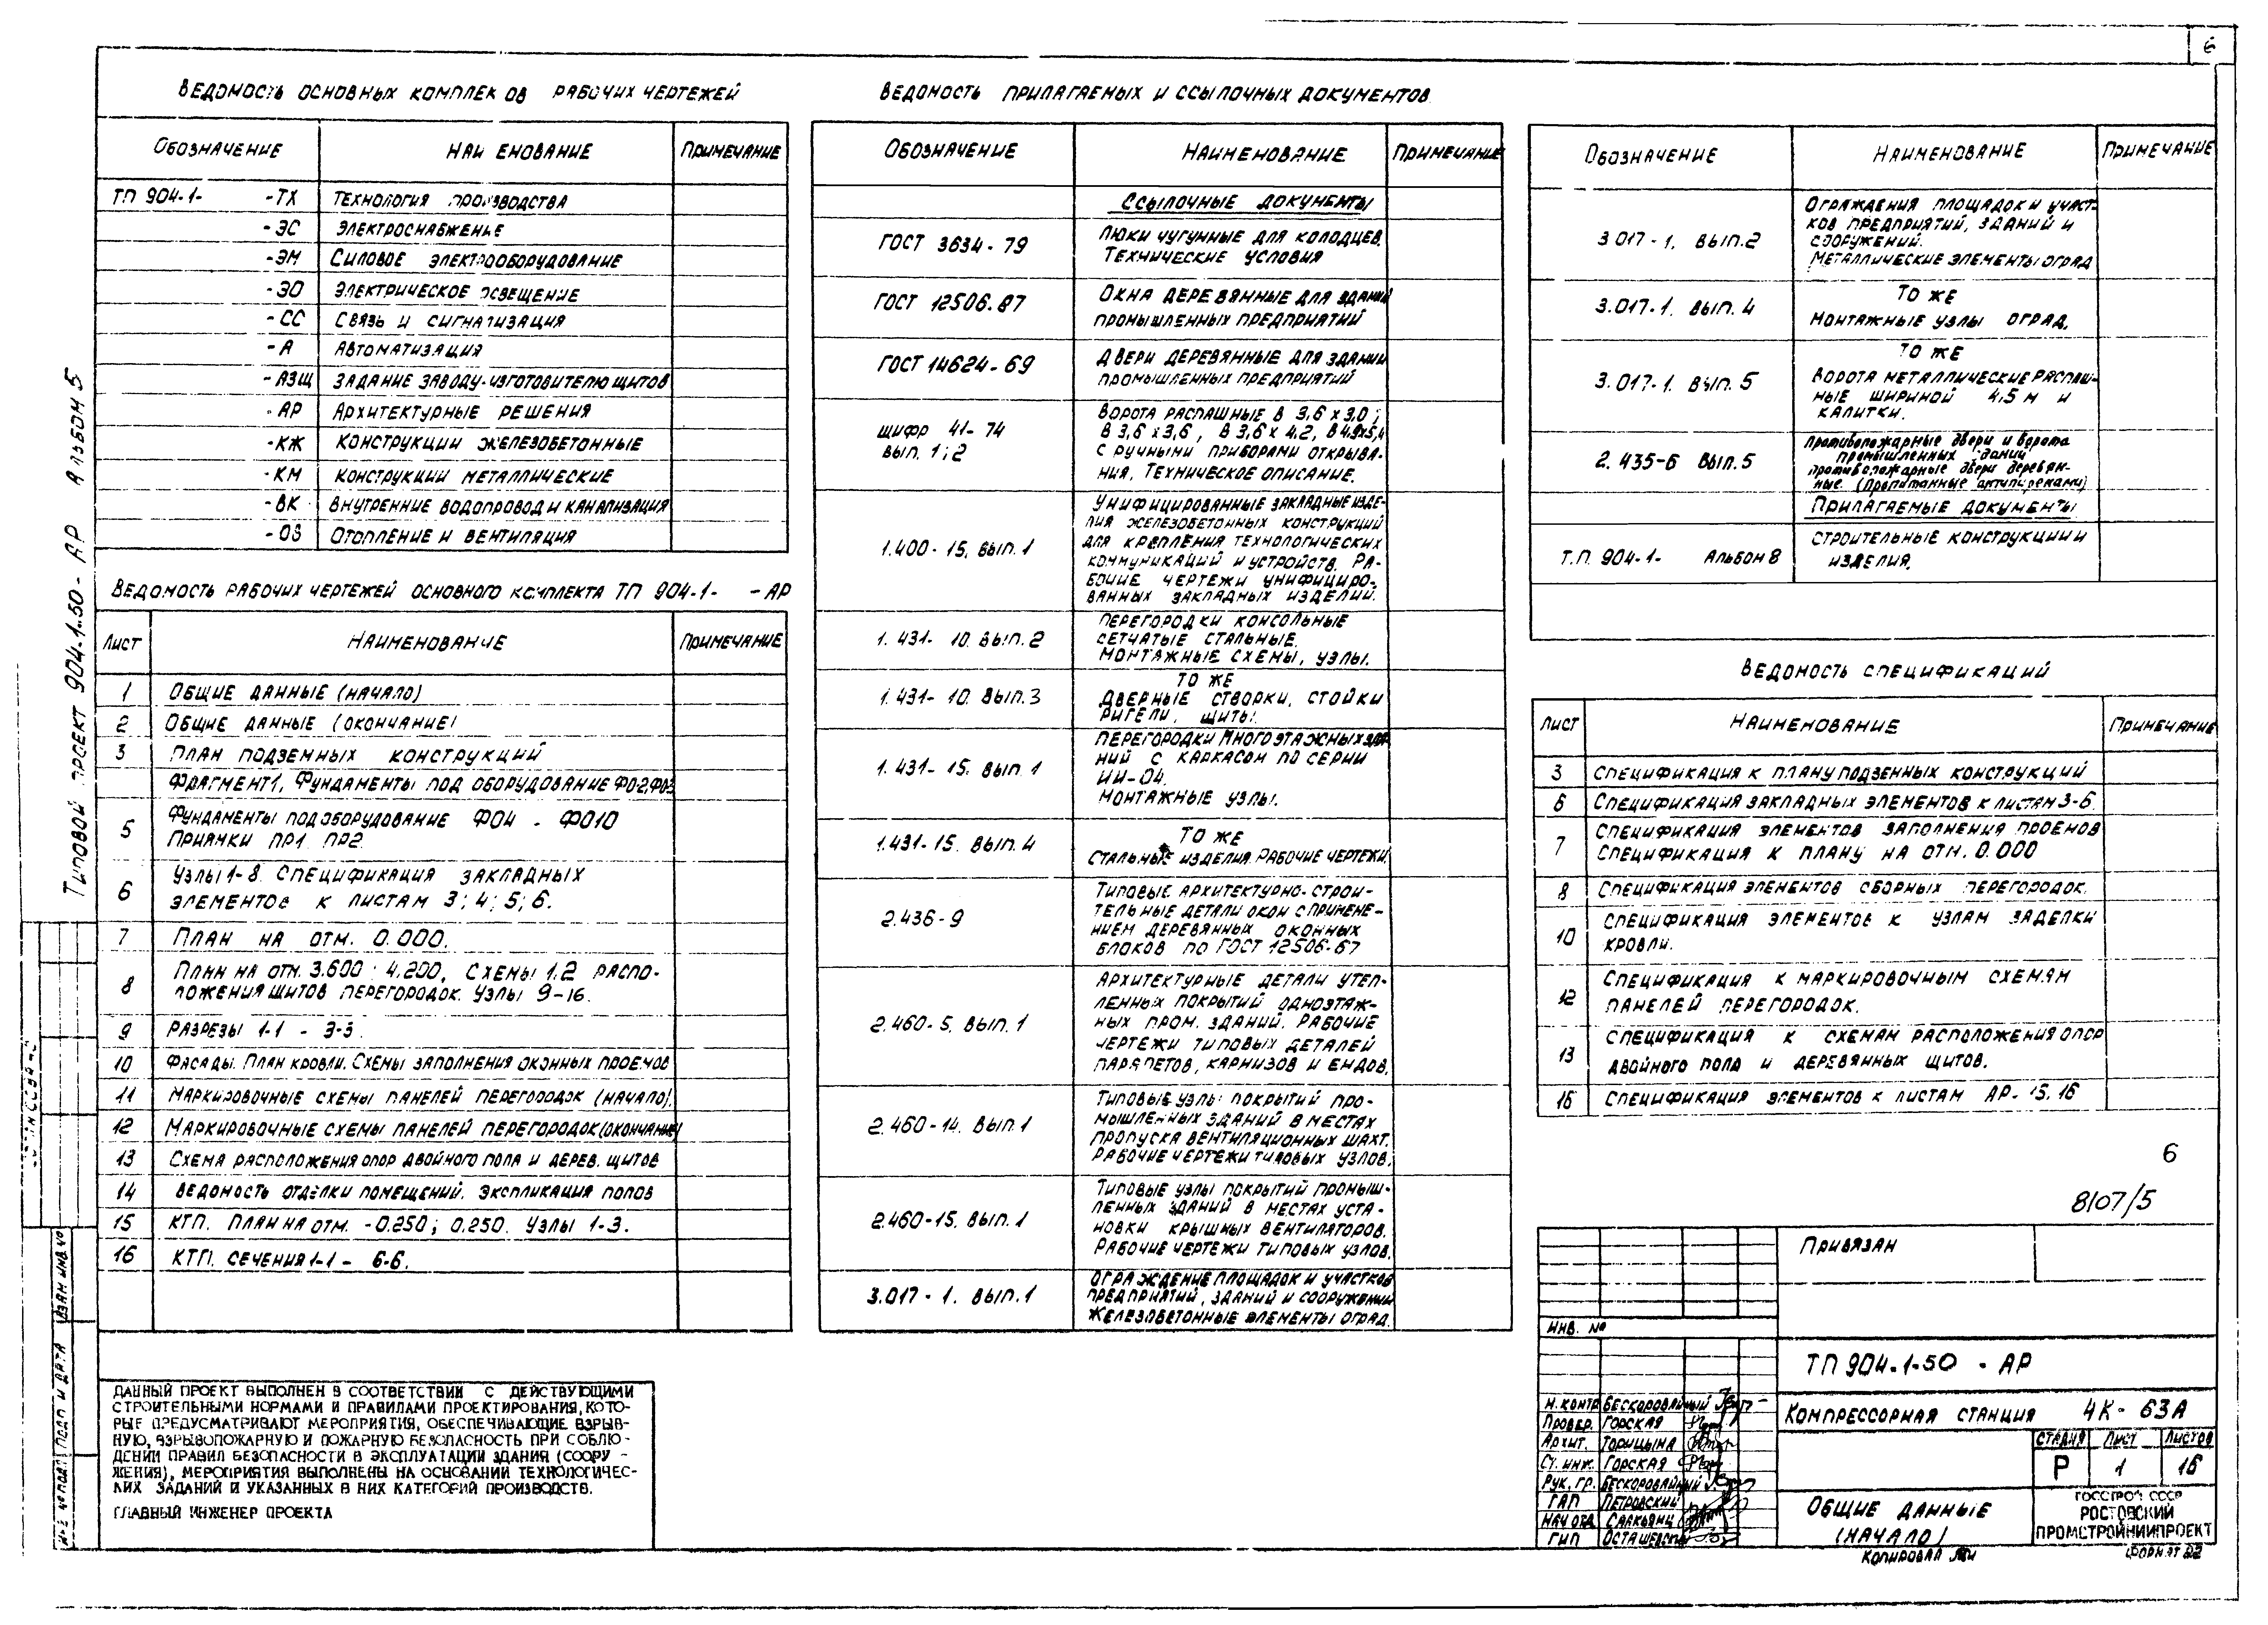 6
Ведомость основных комплек ов рабочих чертежей
Обозначение Наи енование Примечание
ТП 904-1- -ТХ Технология производства
-ЭС Электроснабженье
-ЭМ Силовое электрооборудование
-ЭО Электрическое освещение
-СС Связь и сигнализация
-А Автоматизация
-АЗЩ Задание заводу-изготовителю щитов
-АР Архитектурные решения
-КЖ Конструкции железобетонные
-КМ Конструкции металлические
-ВК Внутренние водопровод и канализация
-ОЗ Отопление и вентиляция
Ведомость рабочих чертежей основного комплекта ТП 904-1- -АР
Лист Наименование Примечание
1 Общие данные (начало)
2 Общие данные (окончание)
3 План подземных конструкций
Фрагмент 1, Фундаменты под оборудование Ф02, Ф03
5 Фундаменты под оборудование Ф04 - Ф010
Приямки ПР1 ПР2.
6 Узлы 1-8. Спецификация закладных
элементов к листам 3; 4; 5; 6.
7 План на отм. 0.000.
8 План на отм. 3.600; 4.200, Схемы 1.2 распо-
ложения щитов перегородок. Узлы 9-16.
9 Разрезы 1-1 - 3-3.
10 Фасады. План кровли. Схемы заполнения оконных проемов
11 Маркировочные схемы панелей перегородок (начало).
12 Маркировочные схемы панелей перегородок (окончание)
13 Схема расположения опор двойного пола и дерев. щитов
14 Ведомость отделки помещений. Экспликация полов
15 КТП. План на отм. -0.250; 0.250. Узлы 1-3.
16 КТП. Сечения 1-1 - 6-6.
Данный проект выполнен в соответствии с действующими
строительными нормами и правилами проектирования, кото-
рые предусматривают мероприятия, обеспечивающие взрыв-
ную, взрывопожарную и пожарную безопасность при соблю-
дении правил безопасности в эксплуатации здания (соору-
жения), мероприятия выполнены на основании технологичес-
ких заданий и указанных в них категорий производств.
Главный инженер проекта
Ведомость прилагаемых и ссылочных документов.
Обозначение Наименование Примечание
Ссылочные документы
ГОСТ 3634-79 Люки чугунные для колодцев.
Технические условия
ГОСТ 12506.87 Окна деревянные для зданий
промышленных предприятий
ГОСТ 14624-69 Двери деревянные для зданий
промышленных предприятий
шифр 41-74
вып. 1; 2
Ворота распашные В 3,6 х 3,0;
В 3,6 х 3,6, В 3,6 х 4.2, В 4,9х5,4
с ручными приборами открыва-
ния. Техническое описание.
1.400-15, вып. 1 Унифицированные закладные изде-
лия железобетонных конструкций
для крепления технологических
коммуникаций и устройств. Ра-
бочие чертежи унифициро-
ванных закладных изделий.
1. 431-10. вып. 2 Перегородки консольные
сетчатые стальные.
Монтажные схемы, узлы.
1. 431-10. вып. 3 То же
Дверные створки, стойки
ригели, щиты.
1. 431-15. вып. 1 Перегородки многоэтажных зда-
ний с каркасом по серии
ИИ-04.
Монтажные узлы.
1.431-15. вып. 4 То же
Стальные изделия. Рабочие чертежи
2.436-9 Типовые архитектурно-строи-
тельные детали окон с примене-
нием деревянных оконных
блоков по ГОСТ 12506-67
2.460-5. вып. 1 Архитектурные детали утеп-
ленных покрытий одноэтаж-
ных пром. зданий. Рабочие
чертежи типовых деталей
парапетов, карнизов и ендов.
2.460-14. вып. 1 Типовые узлы покрытий про-
мышленных зданий в местах
пропуска вентиляционных шахт.
Рабочие чертежи типовых узлов.
2.460-15. вып. 1 Типовые узлы покрытий промыш-
ленных зданий в местах уста-
новки крышных вентиляторов.
Рабочие чертежи типовых узлов.
3.017-1. вып. 1 Ограждение площадок и участков
предприятий, зданий и сооружений
Железобетонные элементы оград.
Обозначение Наименование Примечание
3.017-1. вып. 2 Ограждения площадок и участ-
ков предприятий, зданий и
сооружений.
Металлические элементы оград
3.017-1. вып. 4 То же
Монтажные узлы оград.
3.017-1. вып. 5 То же
Ворота металлические распаш-
ные шириной 4,5 м и
калитки.
2.435-6 вып. 5 Противопожарные двери и ворота
промышленных зданий
противопожарные двери деревян-
ные. (Пропитанные антипиренами)
Прилагаемые документы
Т.П. 904-1- Альбом 8 Строительные конструкции и
изделия.
Ведомость спецификаций
Лист Наименование Примечание
3 Спецификация к плану подземных конструкций
6 Спецификация закладных элементов к листам 3-6.
7 Спецификация элементов заполнения проемов
Спецификация к плану на отм. 0.000
8 Спецификация элементов сборных перегородок.
10 Спецификация элементов к узлам заделки
кровли.
12 Спецификация к маркировочным схемам
панелей перегородок.
13 Спецификация к схемам расположения опор
двойного пола и деревянных щитов.
16 Спецификация элементов к листам АР-15, 16
6
8107/5
Привязан
Инв. №
ТП 904-1-50 - АР
Компрессорная станция 4К-63А
Стадия Лист Листов
Р 1 16
Общие данные
(начало)
Госстрой СССР
Ростовский
Промстройниипроект
Н. контр Бескоровайный
Провер. Горская
Архит. Торицына
Ст. инж. Горская
Рук. гр. Бескоровайный
ГАП Петровский
Нач отд Саакьянц
ГИП
Копировал
Формат 22
Типовой проект 904-1-50-АР Альбом 5
Взам инв. №
Подп и дата